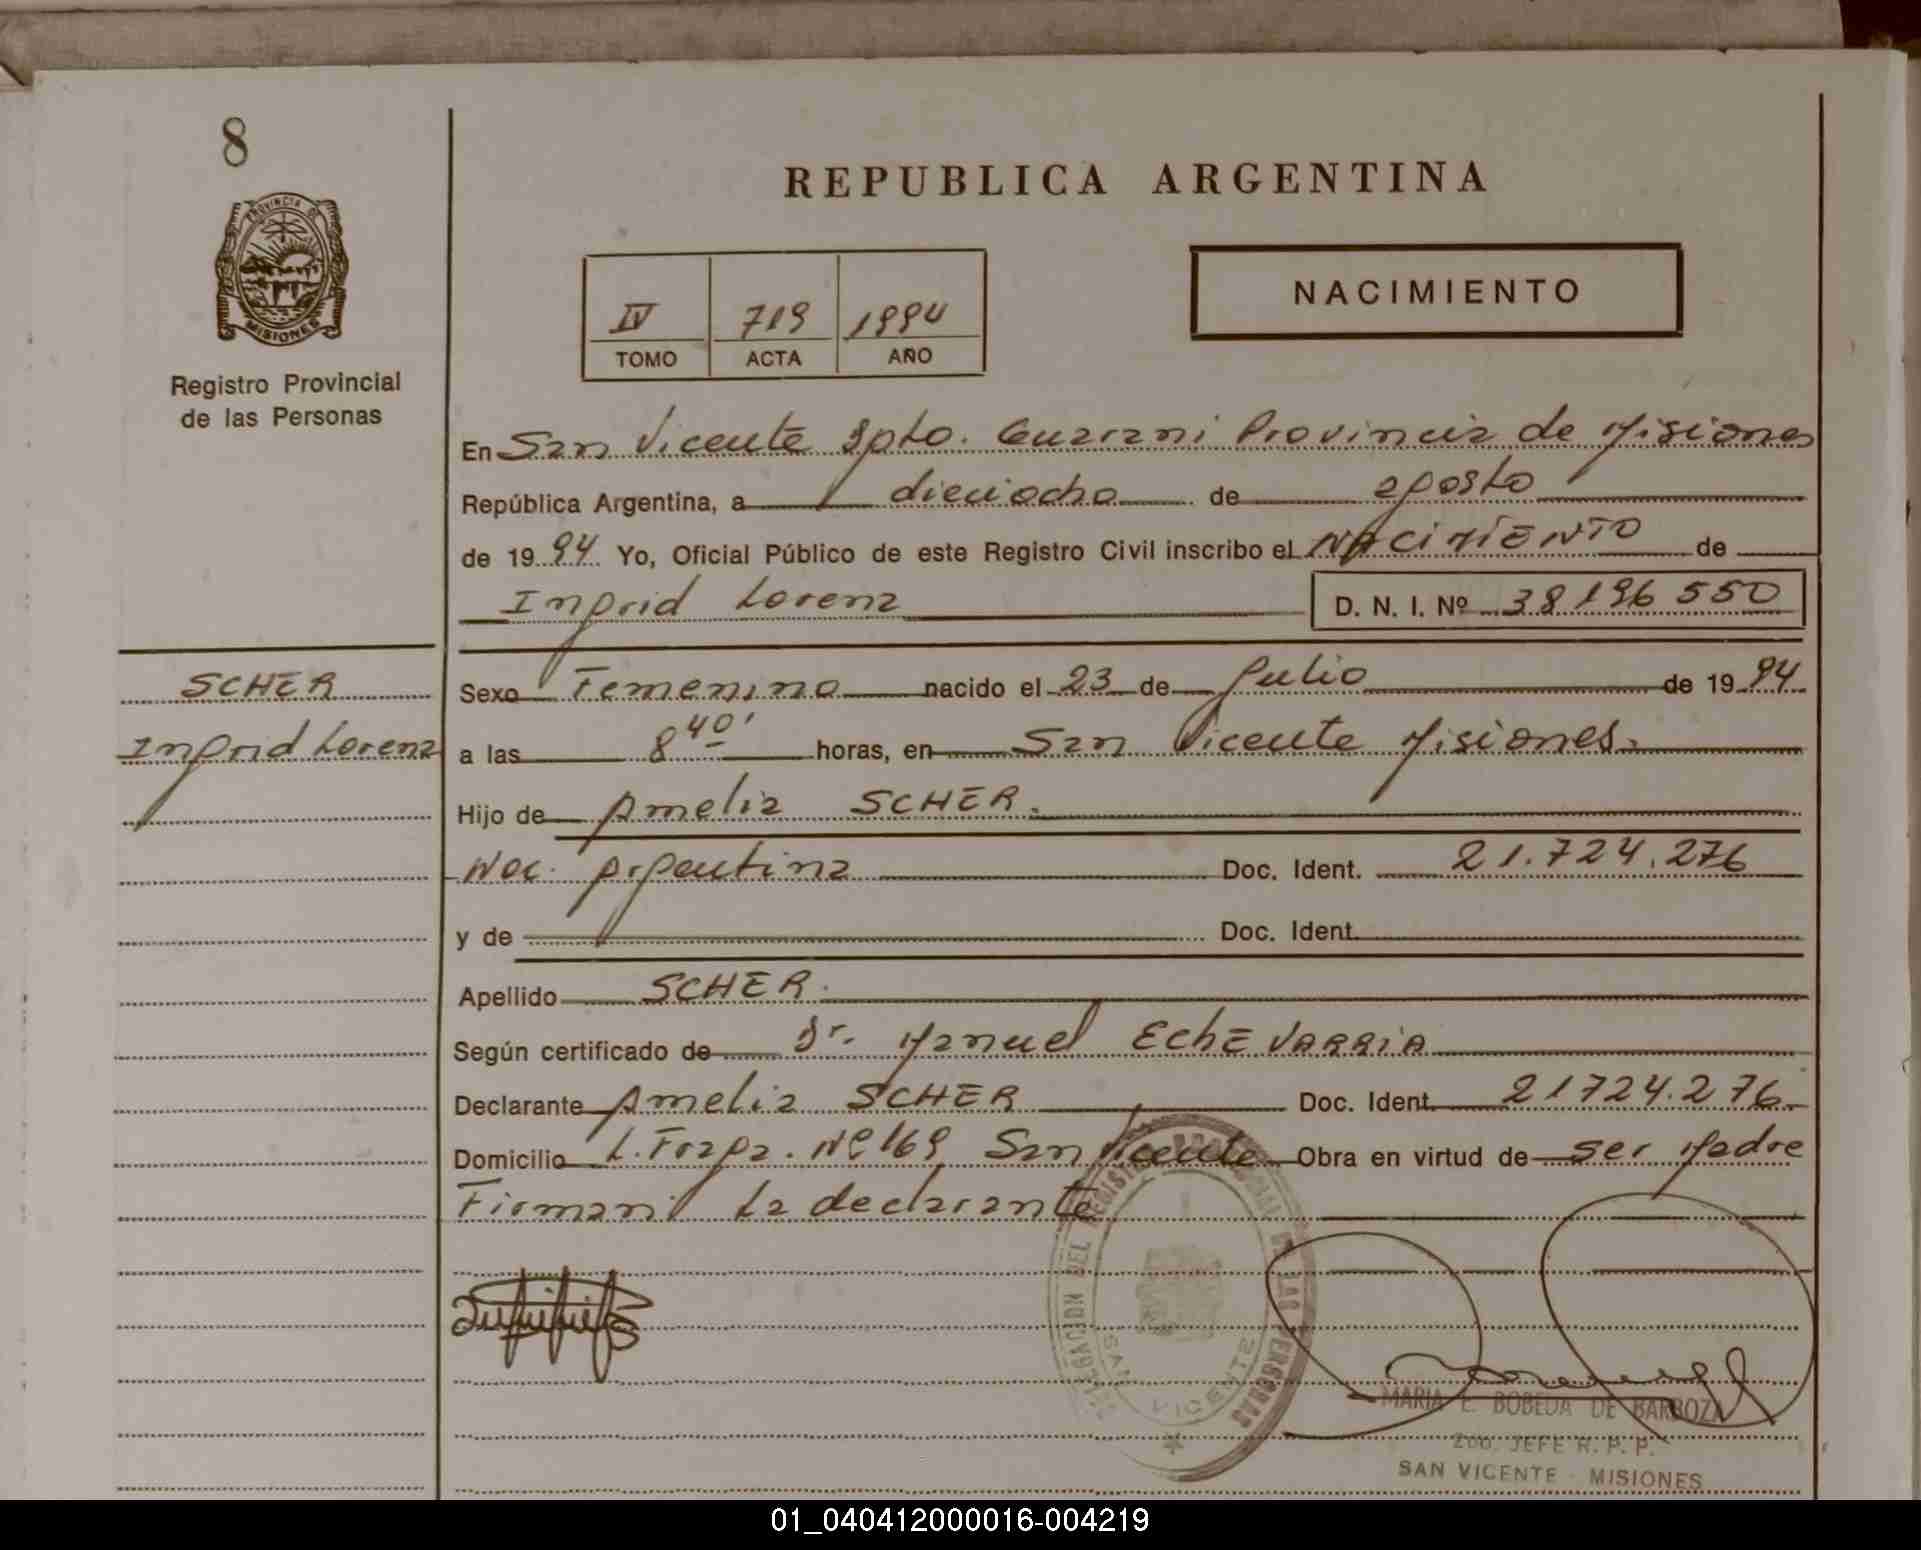 8
PROVINCIA DE
MISIONES
Registro Provincial
de las Personas
REPUBLICA ARGENTINA
IV 719 1994
TOMO ACTA AÑO
NACIMIENTO
En San Vicente Dpto. Guarani Provincia de Misiones
República Argentina, a dieciocho de agosto
de 1994 Yo, Oficial Público de este Registro Civil inscribo el NACIMIENTO de
Ingrid Lorena D. N. I. Nº 38196550
SCHER
Ingrid Lorena
Sexo Femenino nacido el 23 de Julio de 1994
a las 8 40' horas, en San Vicente Misiones.
Hijo de Amelia SCHER.
Nac. Argentina Doc. Ident. 21.724.276
y de Doc. Ident.
Apellido SCHER.
Según certificado de Dr. Manuel EchEVARRIA
Declarante Amelia SCHER Doc. Ident. 21724.276
Domicilio L. Fraga. Nº 169 San Vicente Obra en virtud de ser Madre
Firman La declarante
DELEGACION DEL REGISTRO PROVINCIAL DE LAS PERSONAS
SAN VICENTE
MARIA E. BOBEDA DE BARBOZA
2do. JEFE R. P. P.
SAN VICENTE - MISIONES
01_040412000016-004219